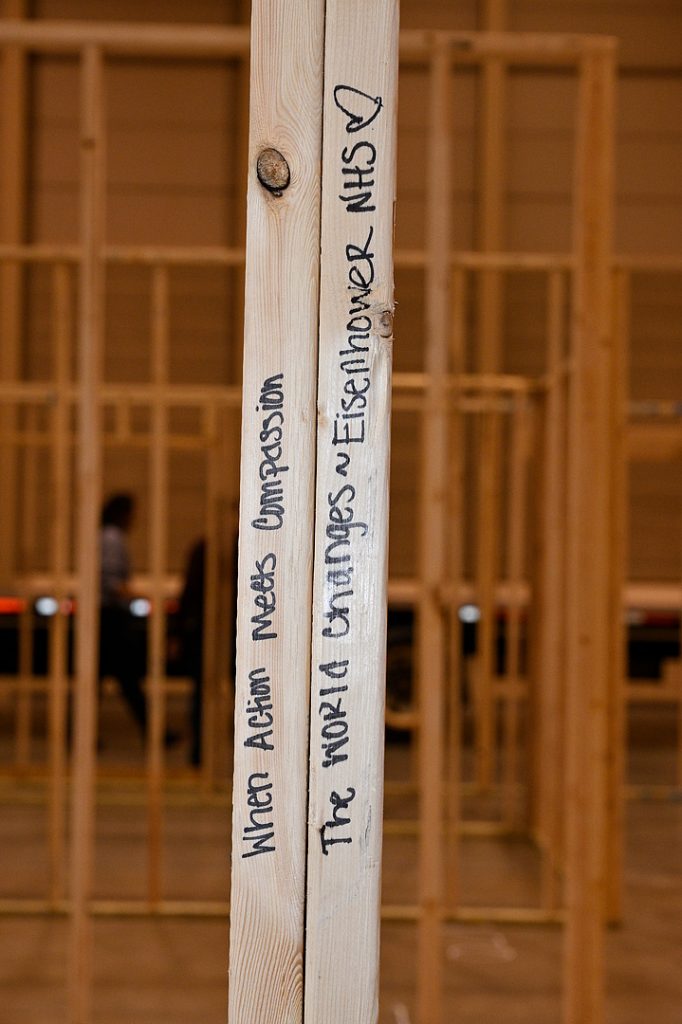 When Action Meets Compassion
The WORld changes ~ Eisenhower NHS ♡